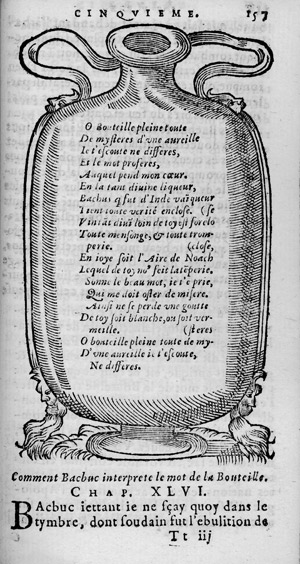 CINQVIEME. 157
O Bouteille pleine toute
De mysteres d'vne aureille
Ie t'escoute ne differes,
Et le mot proferes,
Auquel pend mon cœur.
En la tant diuine liqueur,
Bachus q̃ fut d'Inde vaiq̃ueur
Tient toute verité enclose. (se
Vin tãt diuĩ loin de toy est forclo
Toute mensonge, & toute trom-
perie. (close,
En ioye soit l'Aire de Noach
Lequel de toy noꝰ feit la tẽperie.
Sonne le beau mot, ie t'e prie,
Qui me doit oster de misere.
Ainsi ne se perde vne goutte
De toy soit blanche, ou soit ver-
meille. (steres
O bouteille pleine toute de my-
D'vne aureille ie t'escoute,
Ne differes.
Comment Bacbuc interprete le mot de la Bouteille.
CHAP. XLVI.
BAcbuc iettant ie ne sçay quoy dans le
tymbre, dont soudain fut l'ebulition de
Tt iij